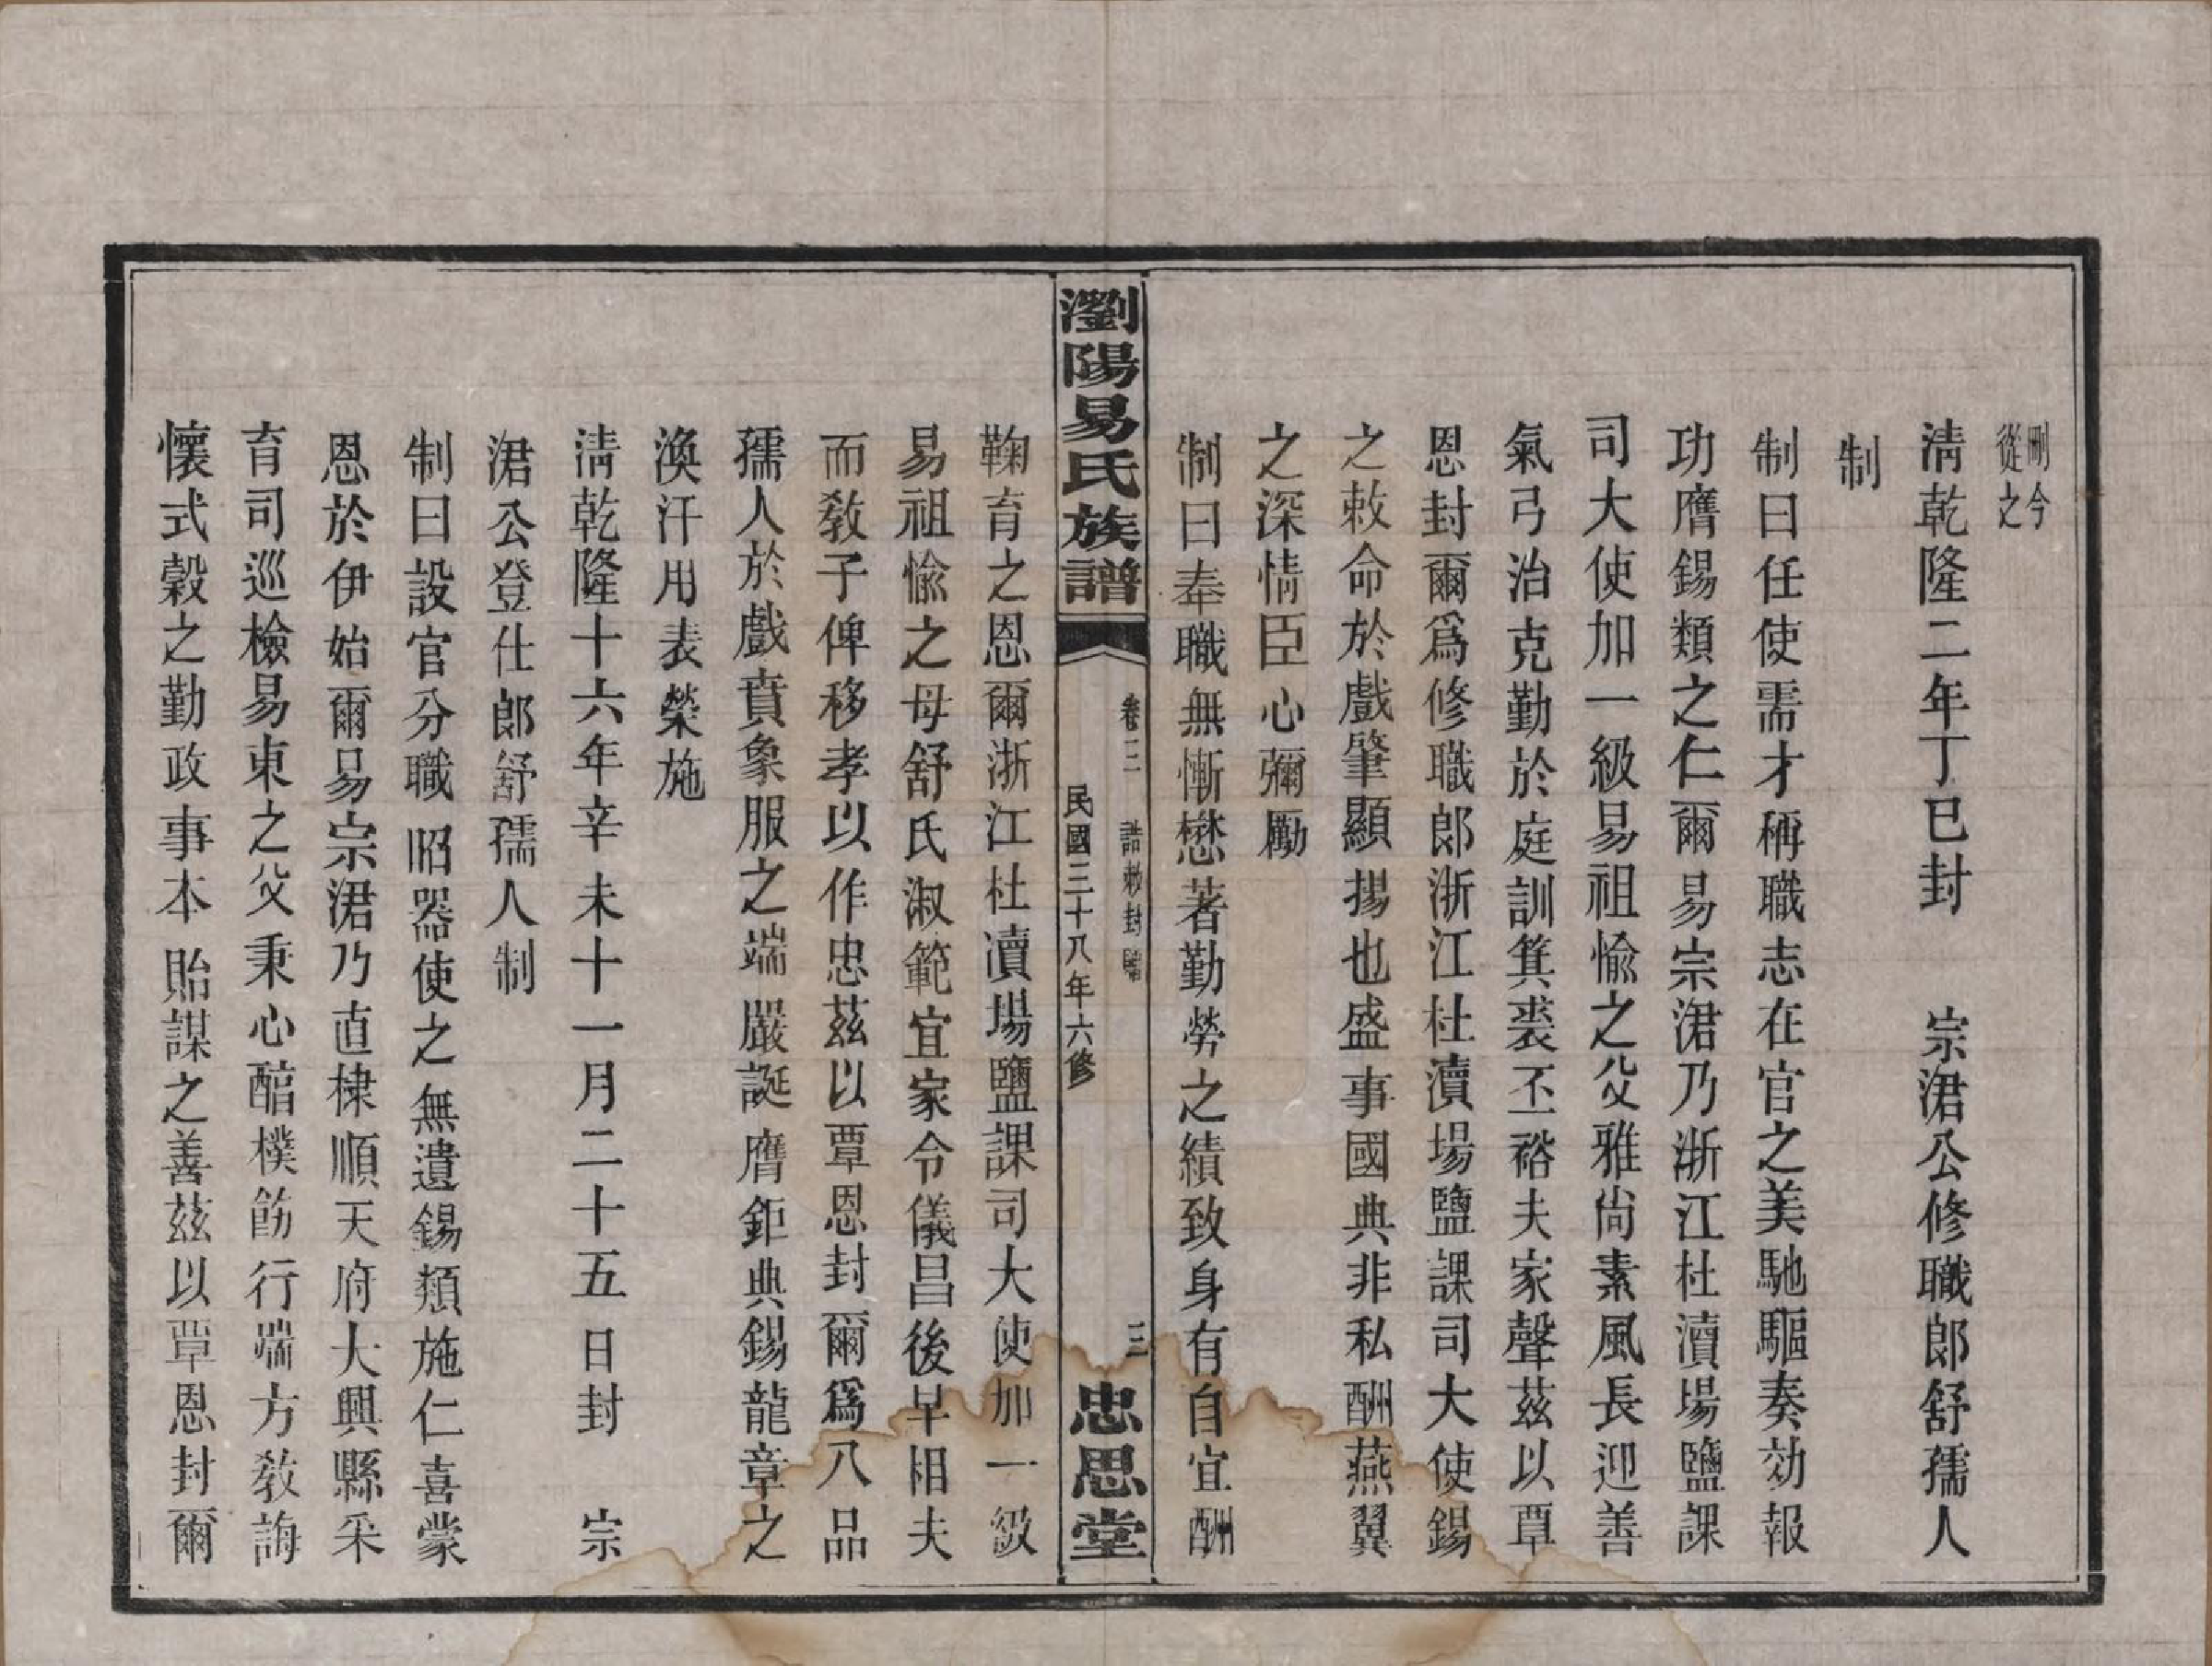 刪今
從之
淸乾隆二年丁巳封　宗涒公修職郎舒孺人
制
制曰任使需才稱職志在官之美馳驅奏効報
功膺錫類之仁爾易宗涒乃浙江杜瀆場鹽課
司大使加一級易祖愉之父雅尙素風長迎善
氣弓治克勤於庭訓箕裘丕裕夫家聲茲以覃
恩封爾爲修職郎浙江杜瀆場鹽課司大使錫
之敕命於戲肇顯揚也盛事國典非私酬燕翼
之深情臣心彌勵
制曰奉職無慚懋著勤勞之績致身有自宜酬
瀏陽易氏族譜
卷二　誥敕封贈
三
民國三十八年六修
忠思堂
鞠育之恩爾浙江杜瀆場鹽課司大使加一級
易祖愉之母舒氏淑範宜家令儀昌後早相夫
而敎子俾移孝以作忠茲以覃恩封爾爲八品
孺人於戲賁象服之端嚴誕膺鉅典錫龍章之
渙汗用表榮施
淸乾隆十六年辛未十一月二十五日封　宗
涒公登仕郎舒孺人制
制曰設官分職昭器使之無遺錫類施仁喜蒙
恩於伊始爾易宗涒乃直棣順天府大興縣采
育司巡檢易東之父秉心醕樸飭行端方敎誨
懷式穀之勤政事本貽謀之善茲以覃恩封爾